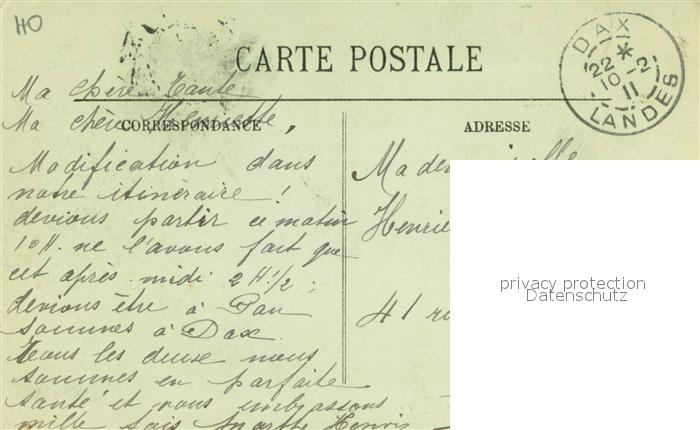 HO
CARTE POSTALE
DAX
22 * -2
10
11
LANDES
Ma chère Tante
Ma chère Henriette,
CORRESPONDANCE
ADRESSE
Modification dans
notre itinéraire !
devions partir ce matin
10H. ne l'avons fait que
cet après-midi 2H1/2 :
devions être à Pau
sommes à Dax.
Tous les deux nous
sommes en parfaite
santé et vous embrassons
mille fois Marthe Henris
Mademoiselle
Henrie
41 ru
privacy protection
Datenschutz